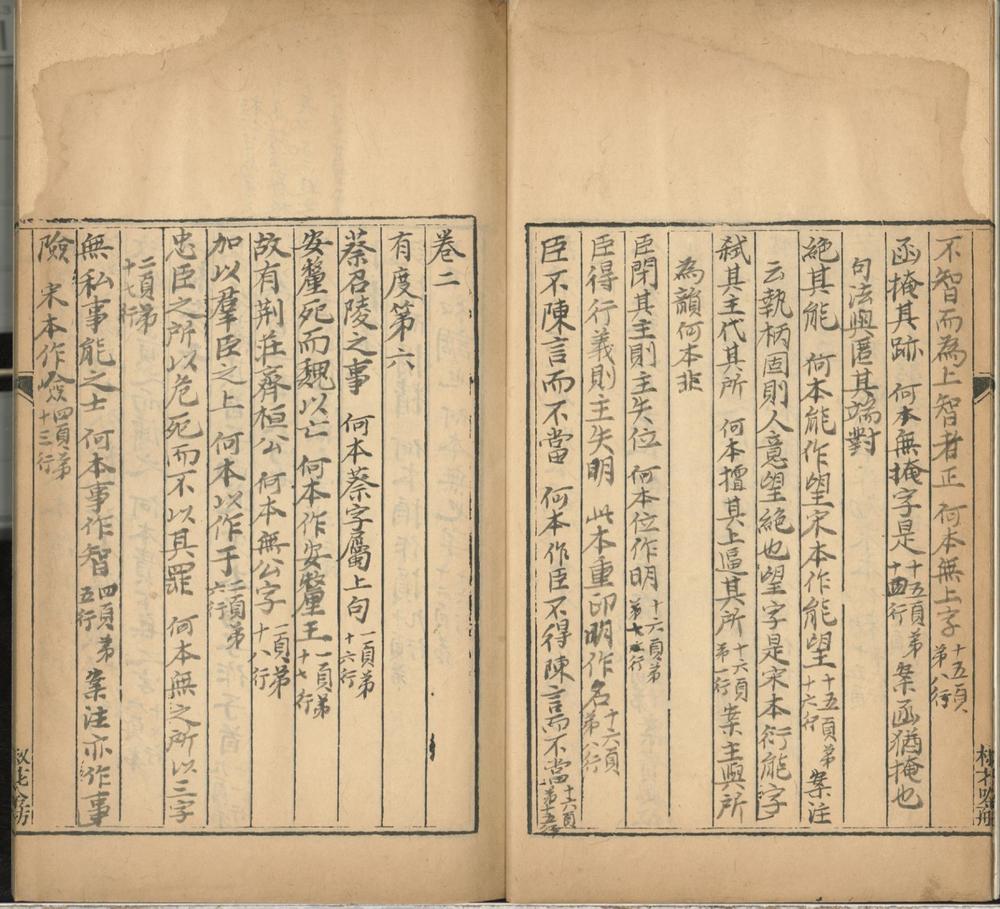 不智而為上智者正 何本無上字十五頁第八行
函掩其跡 何本無掩字是十五頁第十四行 案函猶掩也
句法與匿其端對
絕其能 何本能作望宋本作能望十五頁第十六行 案注
云執柄固則人意望絕也望字是宋本衍能字
弒其主代其所 何本擅其上逼其所十六頁第一行 案主與所
為韻何本非
臣閉其主則主失位 何本位作明十六頁第七行
臣得行義則主失明 此本重卬明作名十六頁第八行
臣不陳言而不當 何本作臣不得陳言而不當十六頁第十五行
卷二
有度第六
蔡召陵之事 何本蔡字屬上句一頁第十六行
安釐死而魏以亡 何本作安釐王一頁第十七行
故有荆莊齊桓公 何本無公字一頁第十八行
加以羣臣之上 何本以作于二頁第六行
忠臣之所以危死而不以其罪 何本無之所以三字
二頁第十七行
無私事能之士 何本事作智四頁第五行 案注亦作事
險 宋本作嶮四頁第十三行